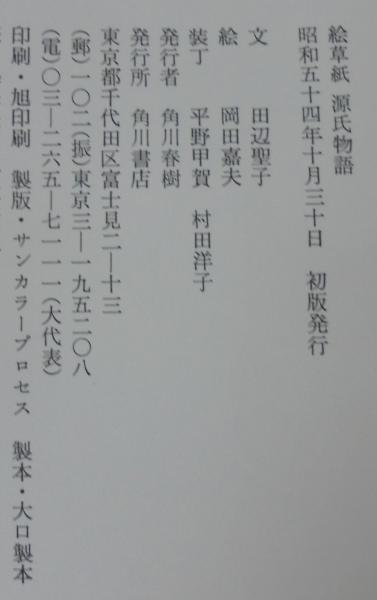 絵草紙 源氏物語
昭和五十四年十月三十日 初版発行
文 田辺聖子
絵 岡田嘉夫
装丁 平野甲賀 村田洋子
発行者 角川春樹
発行所 角川書店
東京都千代田区富士見二―十三
(郵)一〇二(振)東京三―一九五二〇八
(電)〇三―二六五―七一一一(大代表)
印刷・旭印刷 製版・サンカラープロセス 製本・大口製本